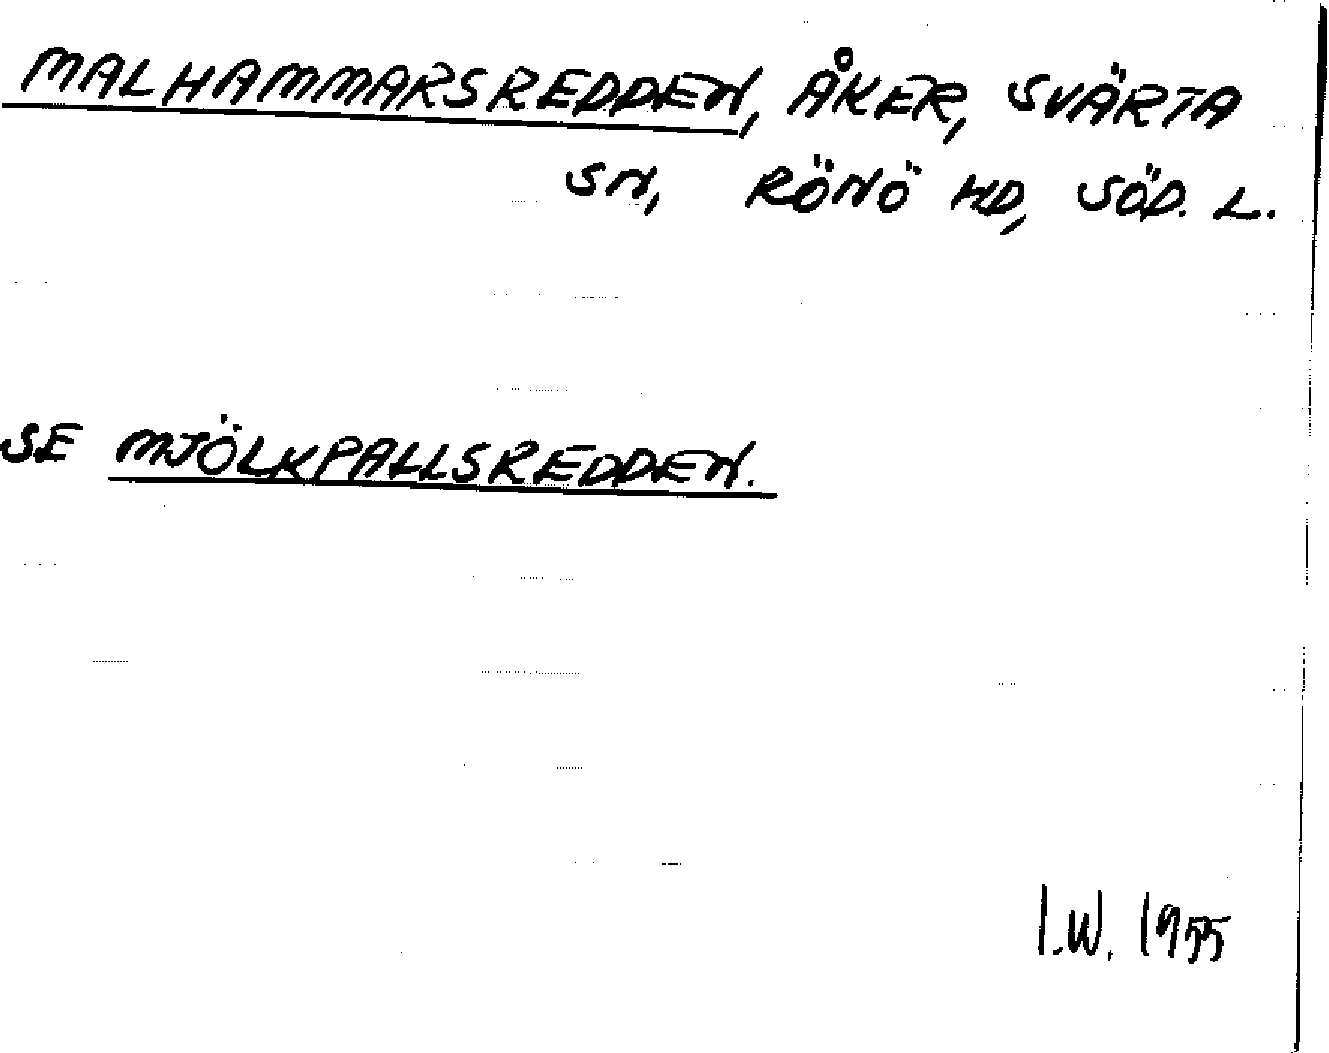 MALHAMMARSREDDEN, ÅKER, SVÄRTA
SN, RÖNÖ HD, SÖD. L.
SE MJÖLKPALLSREDDEN.
I.W. 1955